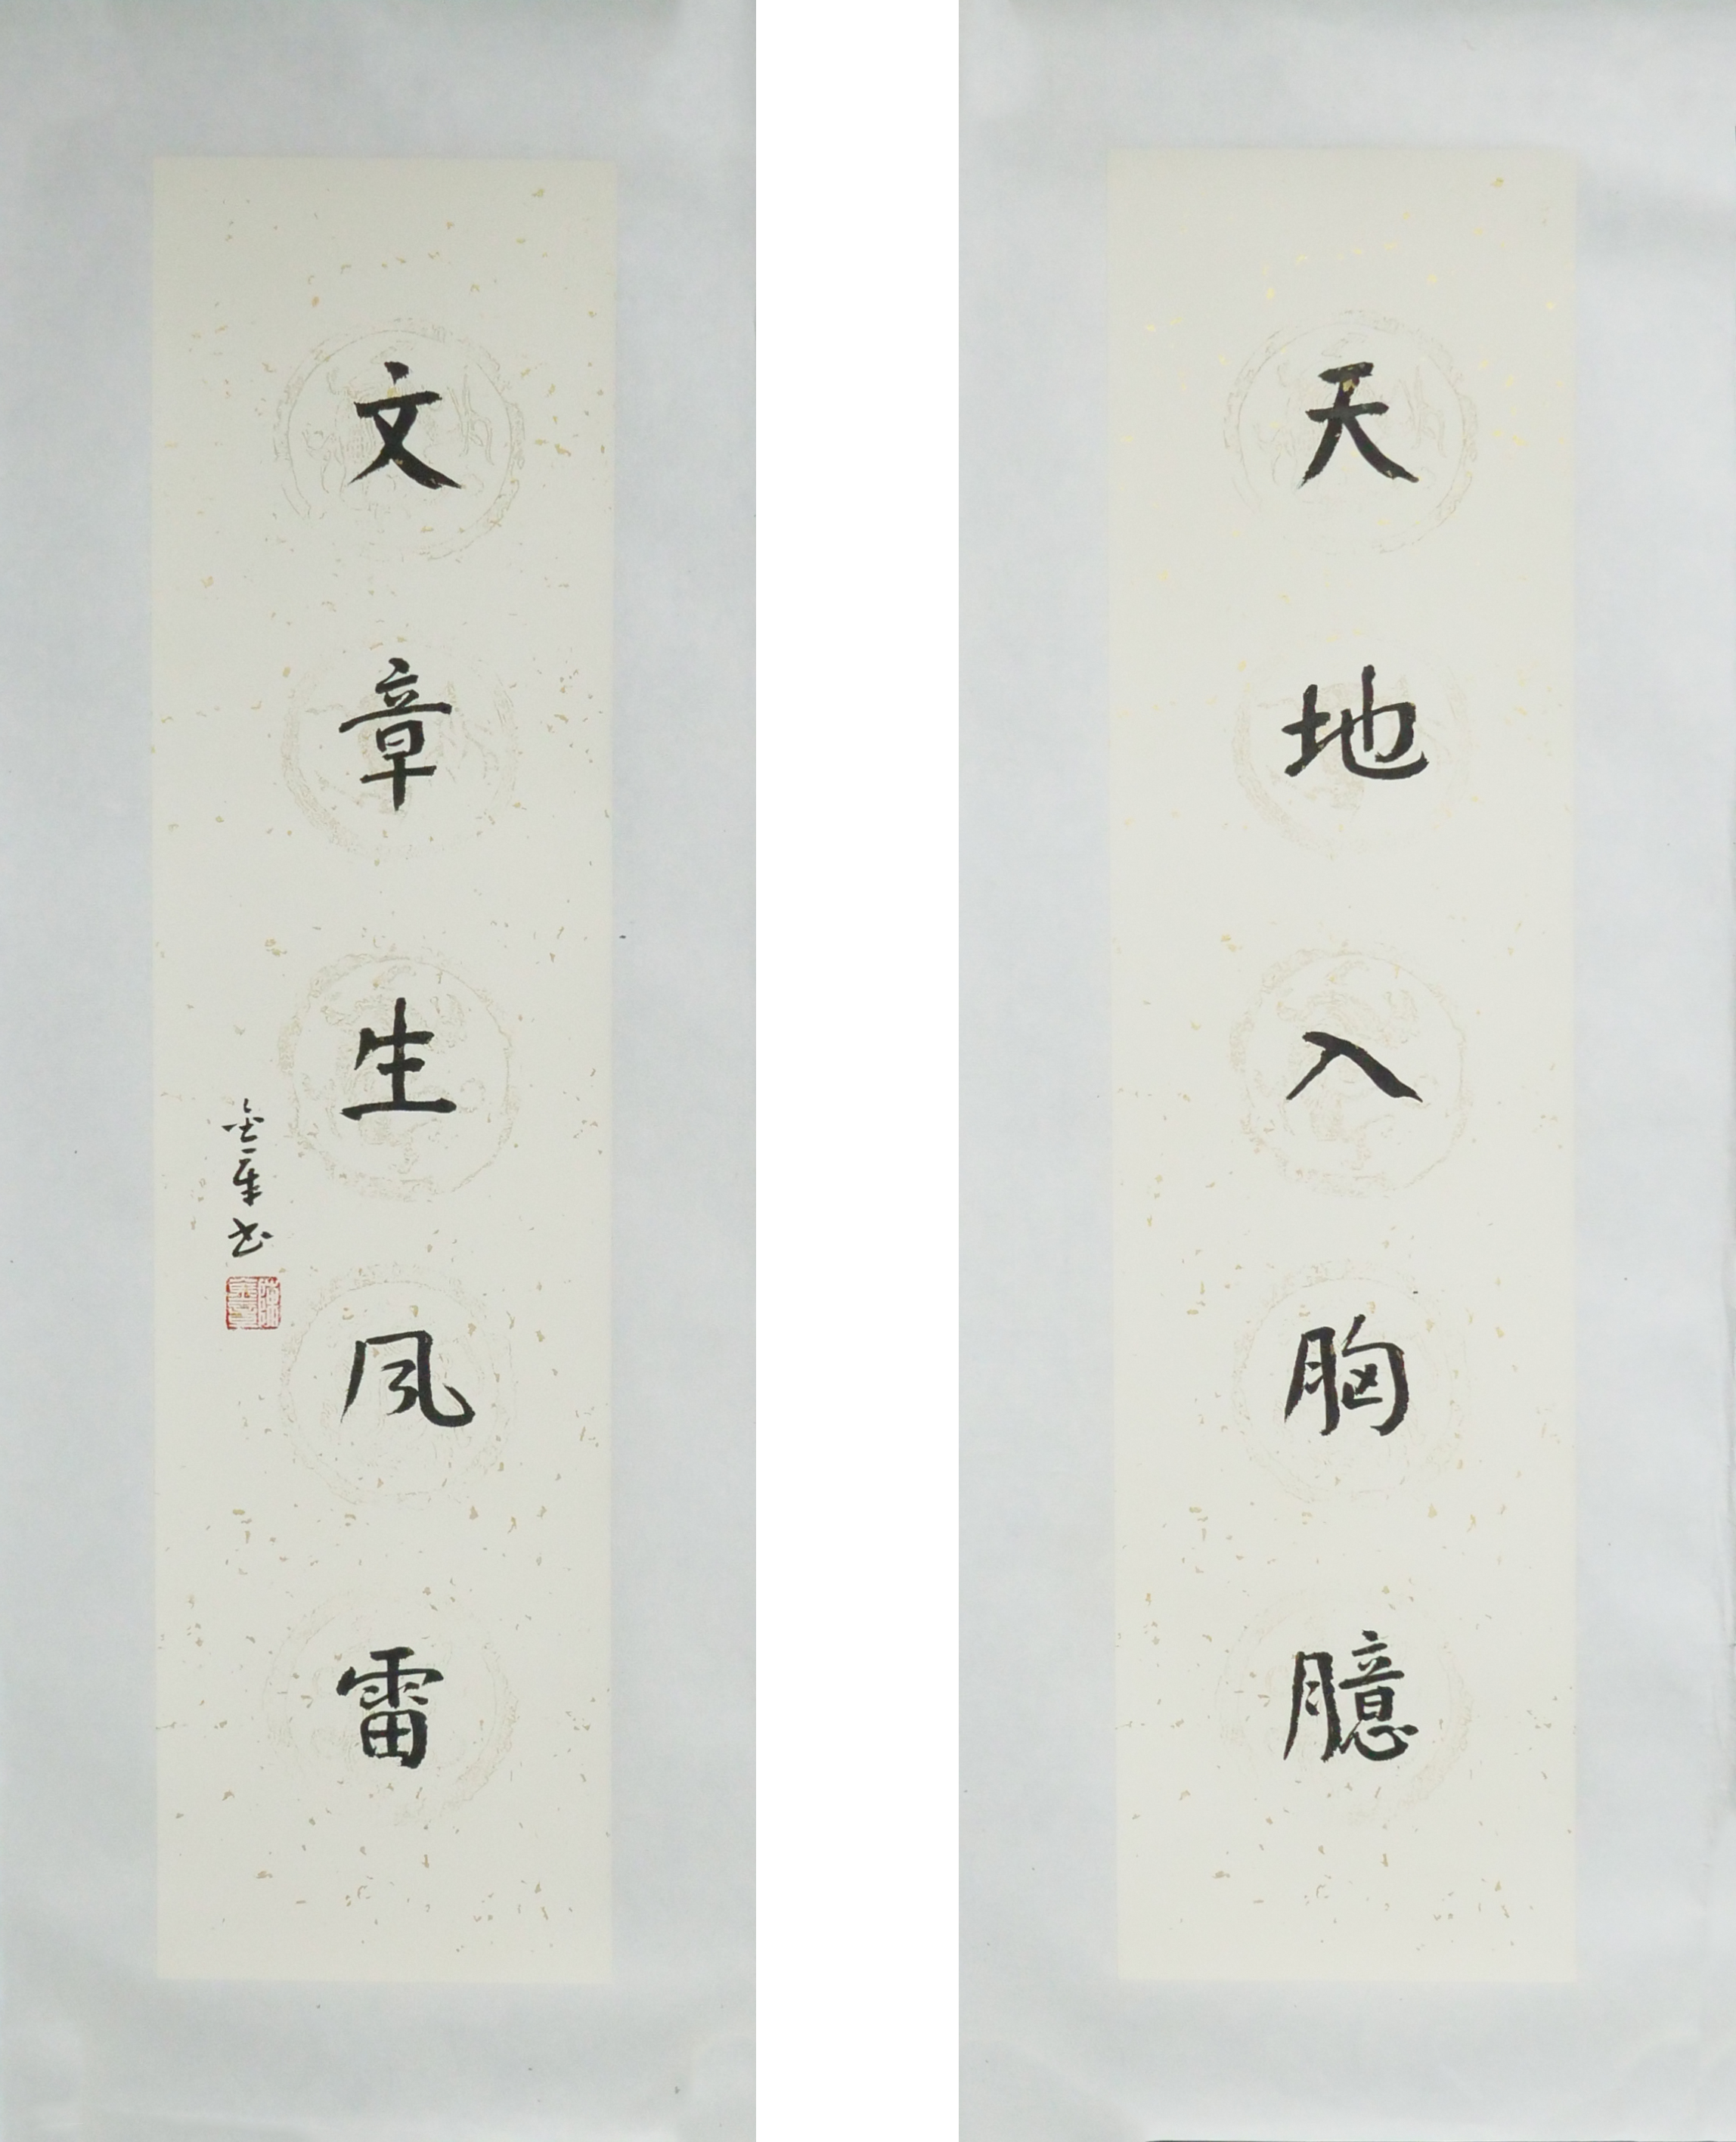 天地入胸臆
文章生风雷
金章书